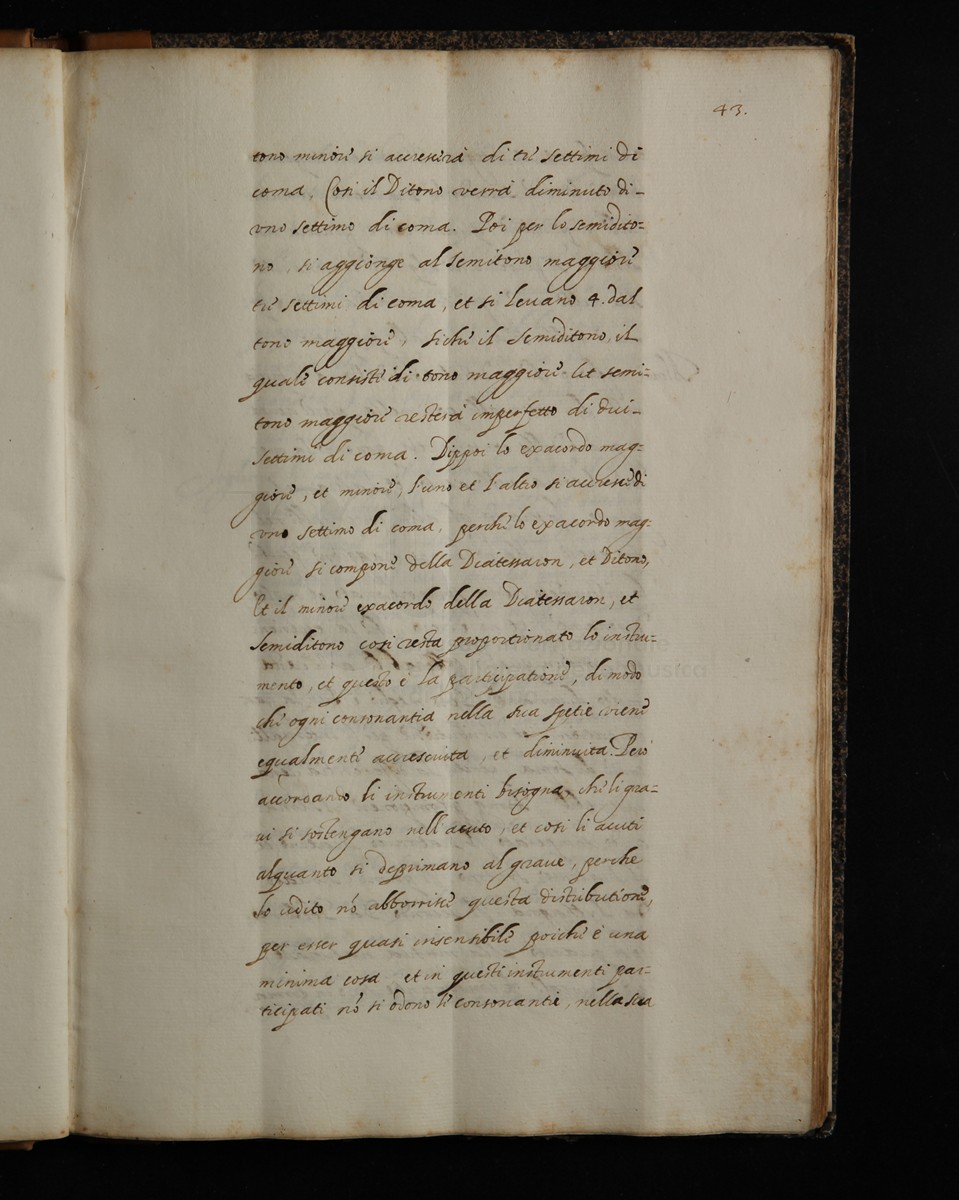 43.
tono minore si accrescerà di tre settimi di
coma, Cosi il Ditono verrà diminuto di-
vno settimo di coma. Poi per lo semidito=
no, si aggionge al semitono maggiore
tre settimi di coma, et si levano 4. dal
tono maggiore, siche il semiditono, il
quale consiste di tono maggiore et semi=
tono maggiore resterà imperfetto di dui-
settimi di coma. Dippoi lo exacordo mag=
giore, et minore, l'uno et l'altro si accresce di
vno settimo di coma, perche lo exacordo mag=
giore si compone della Diatessaron, et Ditono,
Et il minore exacordo della Diatessaron, et
semiditono cosi resta proportionato lo instru=
mento, et questo è la participatione, di modo
che ogni consonantia nella sua spetie viene
egualmente accresciuta, et diminuita. Però
accordando li instrumenti bisogna, che li gra=
ui si sostengano nell'acuto, et cosi li acuti
alquanto si deprimano al graue, perche
lo udito nõ abborrisce questa distributione,
per esser quasi insensibile poiche è una
minima cosa et in questi instrumenti par=
ticipati nõ si odono le consonantie, nella sua